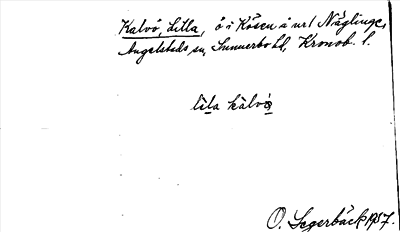 Kalvö, Lilla, ö i Kösen å nr 1 Näglinge,
Angelstads sn, Sunnerbo hd, Kronob. l.
lila kalvö
O. Segerbäck 1937.